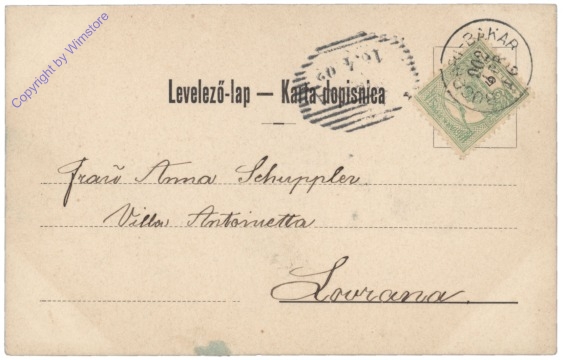 Copyright by Wimstore
Levelező-lap — Karta dopisnica
BAKAR
Fraŭ Anna Schuppler.
Villa Antonietta
Lovrana.